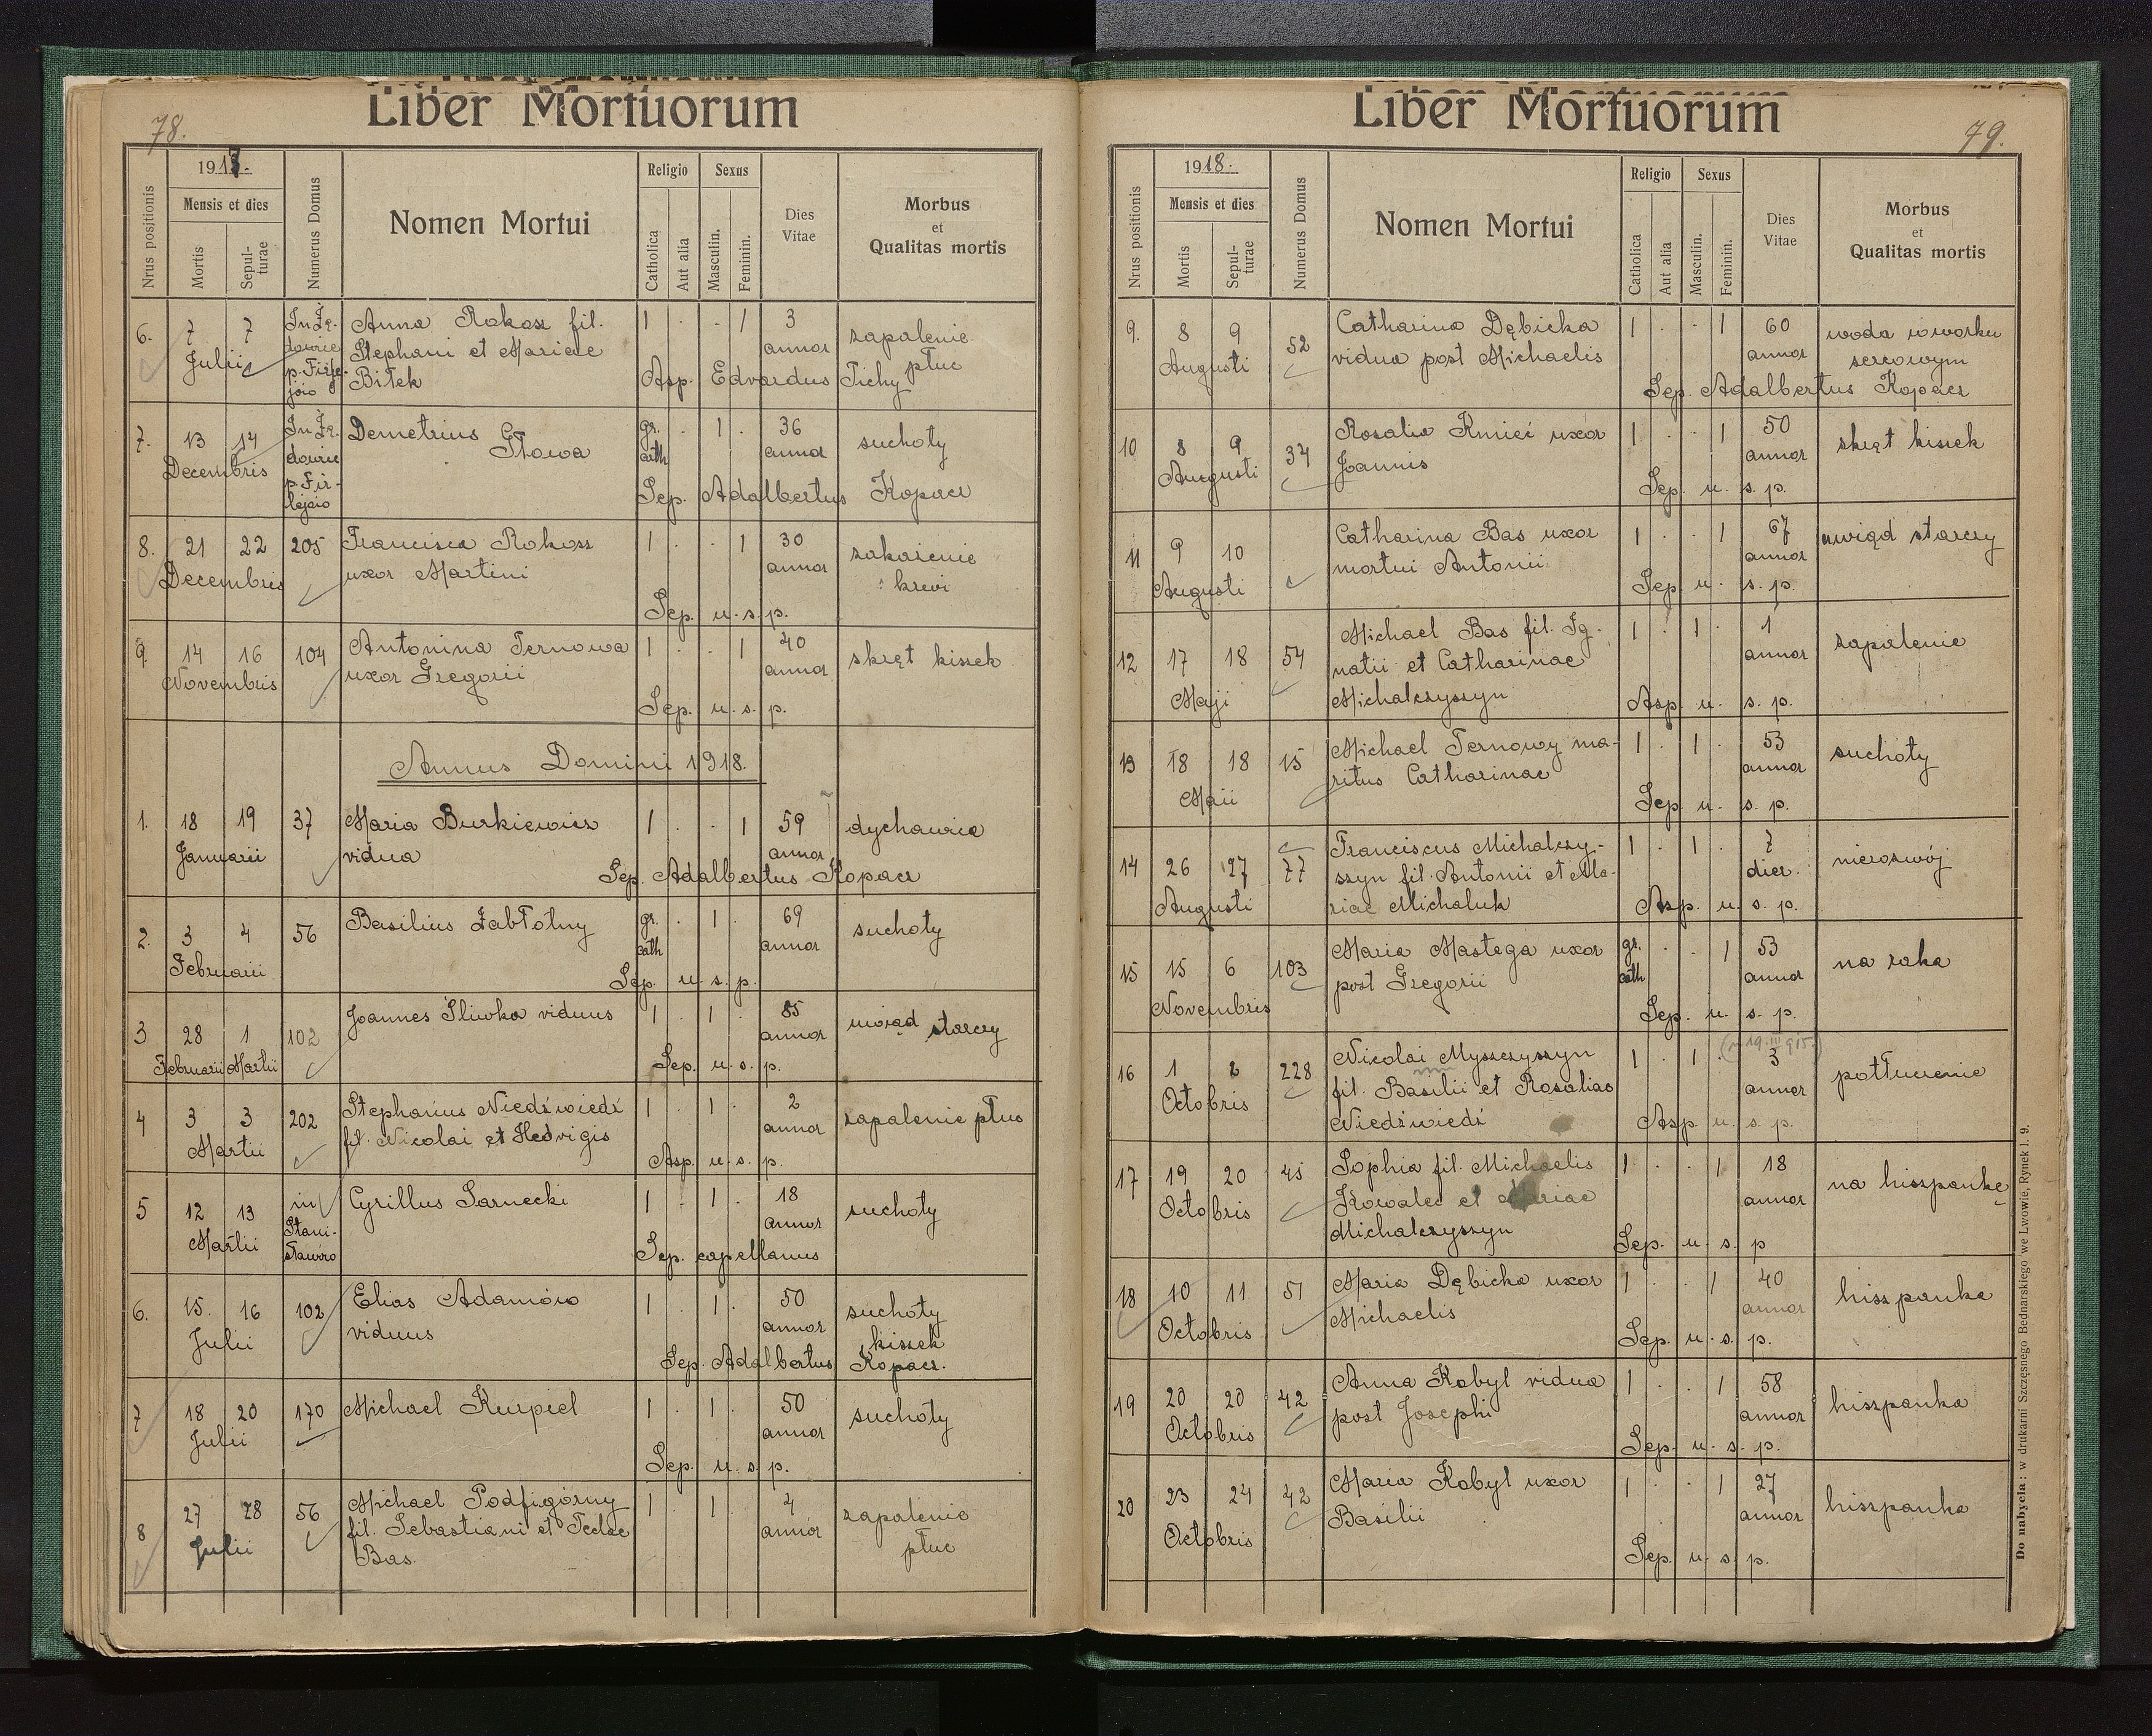 Liber Mortuorum
78.
Nrus positionis
1917.
Mensis et dies
Mortis
Sepul-
turae
Numerus Domus
Nomen Mortui
Religio
Catholica
Aut alia
Sexus
Masculin.
Feminin.
Dies
Vitae
Morbus
et
Qualitas mortis
6. 7 7 Anna Rokosz fil. 1 . . 1 3 zapalenie
Julii Stephani et Mariae annor płuc
Bitek Asp. Edvardus Tichy
7. 13 14 Demetrius gr. 1 . 36 suchoty
Decembris Głowa cath annor
Sep. Adalbertus Kopacz
8. 21 22 205 Francisca Rokosz 1 . . 1 30 zakażenie
Decembris uxor Martini annor krwi
Sep. u. s. p.
9. 14 16 104 Antonina Ternowa 1 . . 1 40 skręt kiszek
Novembris uxor Gregorii annor
Sep. u. s. p.
Annus Domini 1918.
1. 18 19 37 Maria Burkiewicz 1 . . 1 59 dychawica
Januarii vidua annor
Sep. Adalbertus Kopacz
2. 3 4 56 Basilius Zabłotny gr. . 1 . 69 suchoty
Februarii cath annor
Sep. u. s. p.
3 28 1 102 Joannes Śliwka viduus 1 . 1 . 85 uwiąd starczy
Februarii Martii annor
Sep. u. s. p.
4 3 3 202 Stephanus Niedźwiedź 1 . 1 . 2 zapalenie płuc
Martii fil. Nicolai et Hedvigis annor
Asp. u. s. p.
5 12 13 in Cyrillus Sarnecki 1 . 1 . 18 suchoty
Martii Stani- annor
sławów Sep. capellanus
6. 15. 16 102 Elias Adamów 1 . 1 . 50 suchoty
Julii viduus annor kiszek
Sep. Adalbertus Kopacz.
7 18 20 170 Michael Kurpiel 1 . 1 . 50 suchoty
Julii annor
Sep. u. s. p.
8 27 28 56 Michael Podfigórny 1 . 1 . 4 zapalenie
Julii fil. Sebastiani et Teclae annor płuc
Bas.
Liber Mortuorum
79.
Nrus positionis
1918.
Mensis et dies
Mortis
Sepul-
turae
Numerus Domus
Nomen Mortui
Religio
Catholica
Aut alia
Sexus
Masculin.
Feminin.
Dies
Vitae
Morbus
et
Qualitas mortis
9. 8 9 52 Catharina Dębicka 1 . . 1 60 woda w worku
Augusti vidua post Michaelis annor sercowym
Sep. Adalbertus Kopacz
10 8 9 34 Rosalia Kmieć uxor 1 . . 1 50 skręt kiszek
Augusti Joannis annor
Sep. u. s. p.
11 9 10 Catharina Bas uxor 1 . . 1 67 uwiąd starczy
Augusti mortui Antonii annor
Sep. u. s. p.
12 17 18 54 Michael Bas fil. Ig- 1 . 1 . 1 zapalenie
Maji natii et Catharinae annor
Michalczyszyn Asp. u. s. p.
13 18 18 15 Michael Ternowy ma- 1 . 1 . 53 suchoty
Maii ritus Catharinae annor
Sep. u. s. p.
14 26 27 77 Franciscus Michalczy- 1 . 1 . 7 nierozwój
Augusti szyn fil. Antonii et Ma- dier.
riae Michaluk Asp. u. s. p.
15 15 6 103 Maria Mastega uxor gr. . . 1 53 na raka
Novembris post Gregorii cath annor
Sep. u. s. p.
16 1 2 228 Nicolai Myszczyszyn 1 . 1 . 3 potłuczenie
Octobris fil. Basilii et Rosaliae annor
Niedźwiedź Asp. u. s. p.
17 19 20 45 Sophia fil. Michaelis 1 . . 1 18 na hiszpankę
Octobris Kowalec et Mariae annor
Michalczyszyn Sep. u. s. p
18 10 11 51 Maria Dębicka uxor 1 . . 1 40 hiszpanka
Octobris Michaelis annor
Sep. u. s. p.
19 20 20 42 Anna Kobyl vidua 1 . . 1 58 hiszpanka
Octobris post Josephi annor
Sep. u. s. p.
20 23 24 42 Maria Kobyl uxor 1 . . 1 27 hiszpanka
Octobris Basilii annor
Sep. u. s. p.
Do nabycia: w drukarni Szczęsnego Bednarskiego we Lwowie, Rynek l. 9.